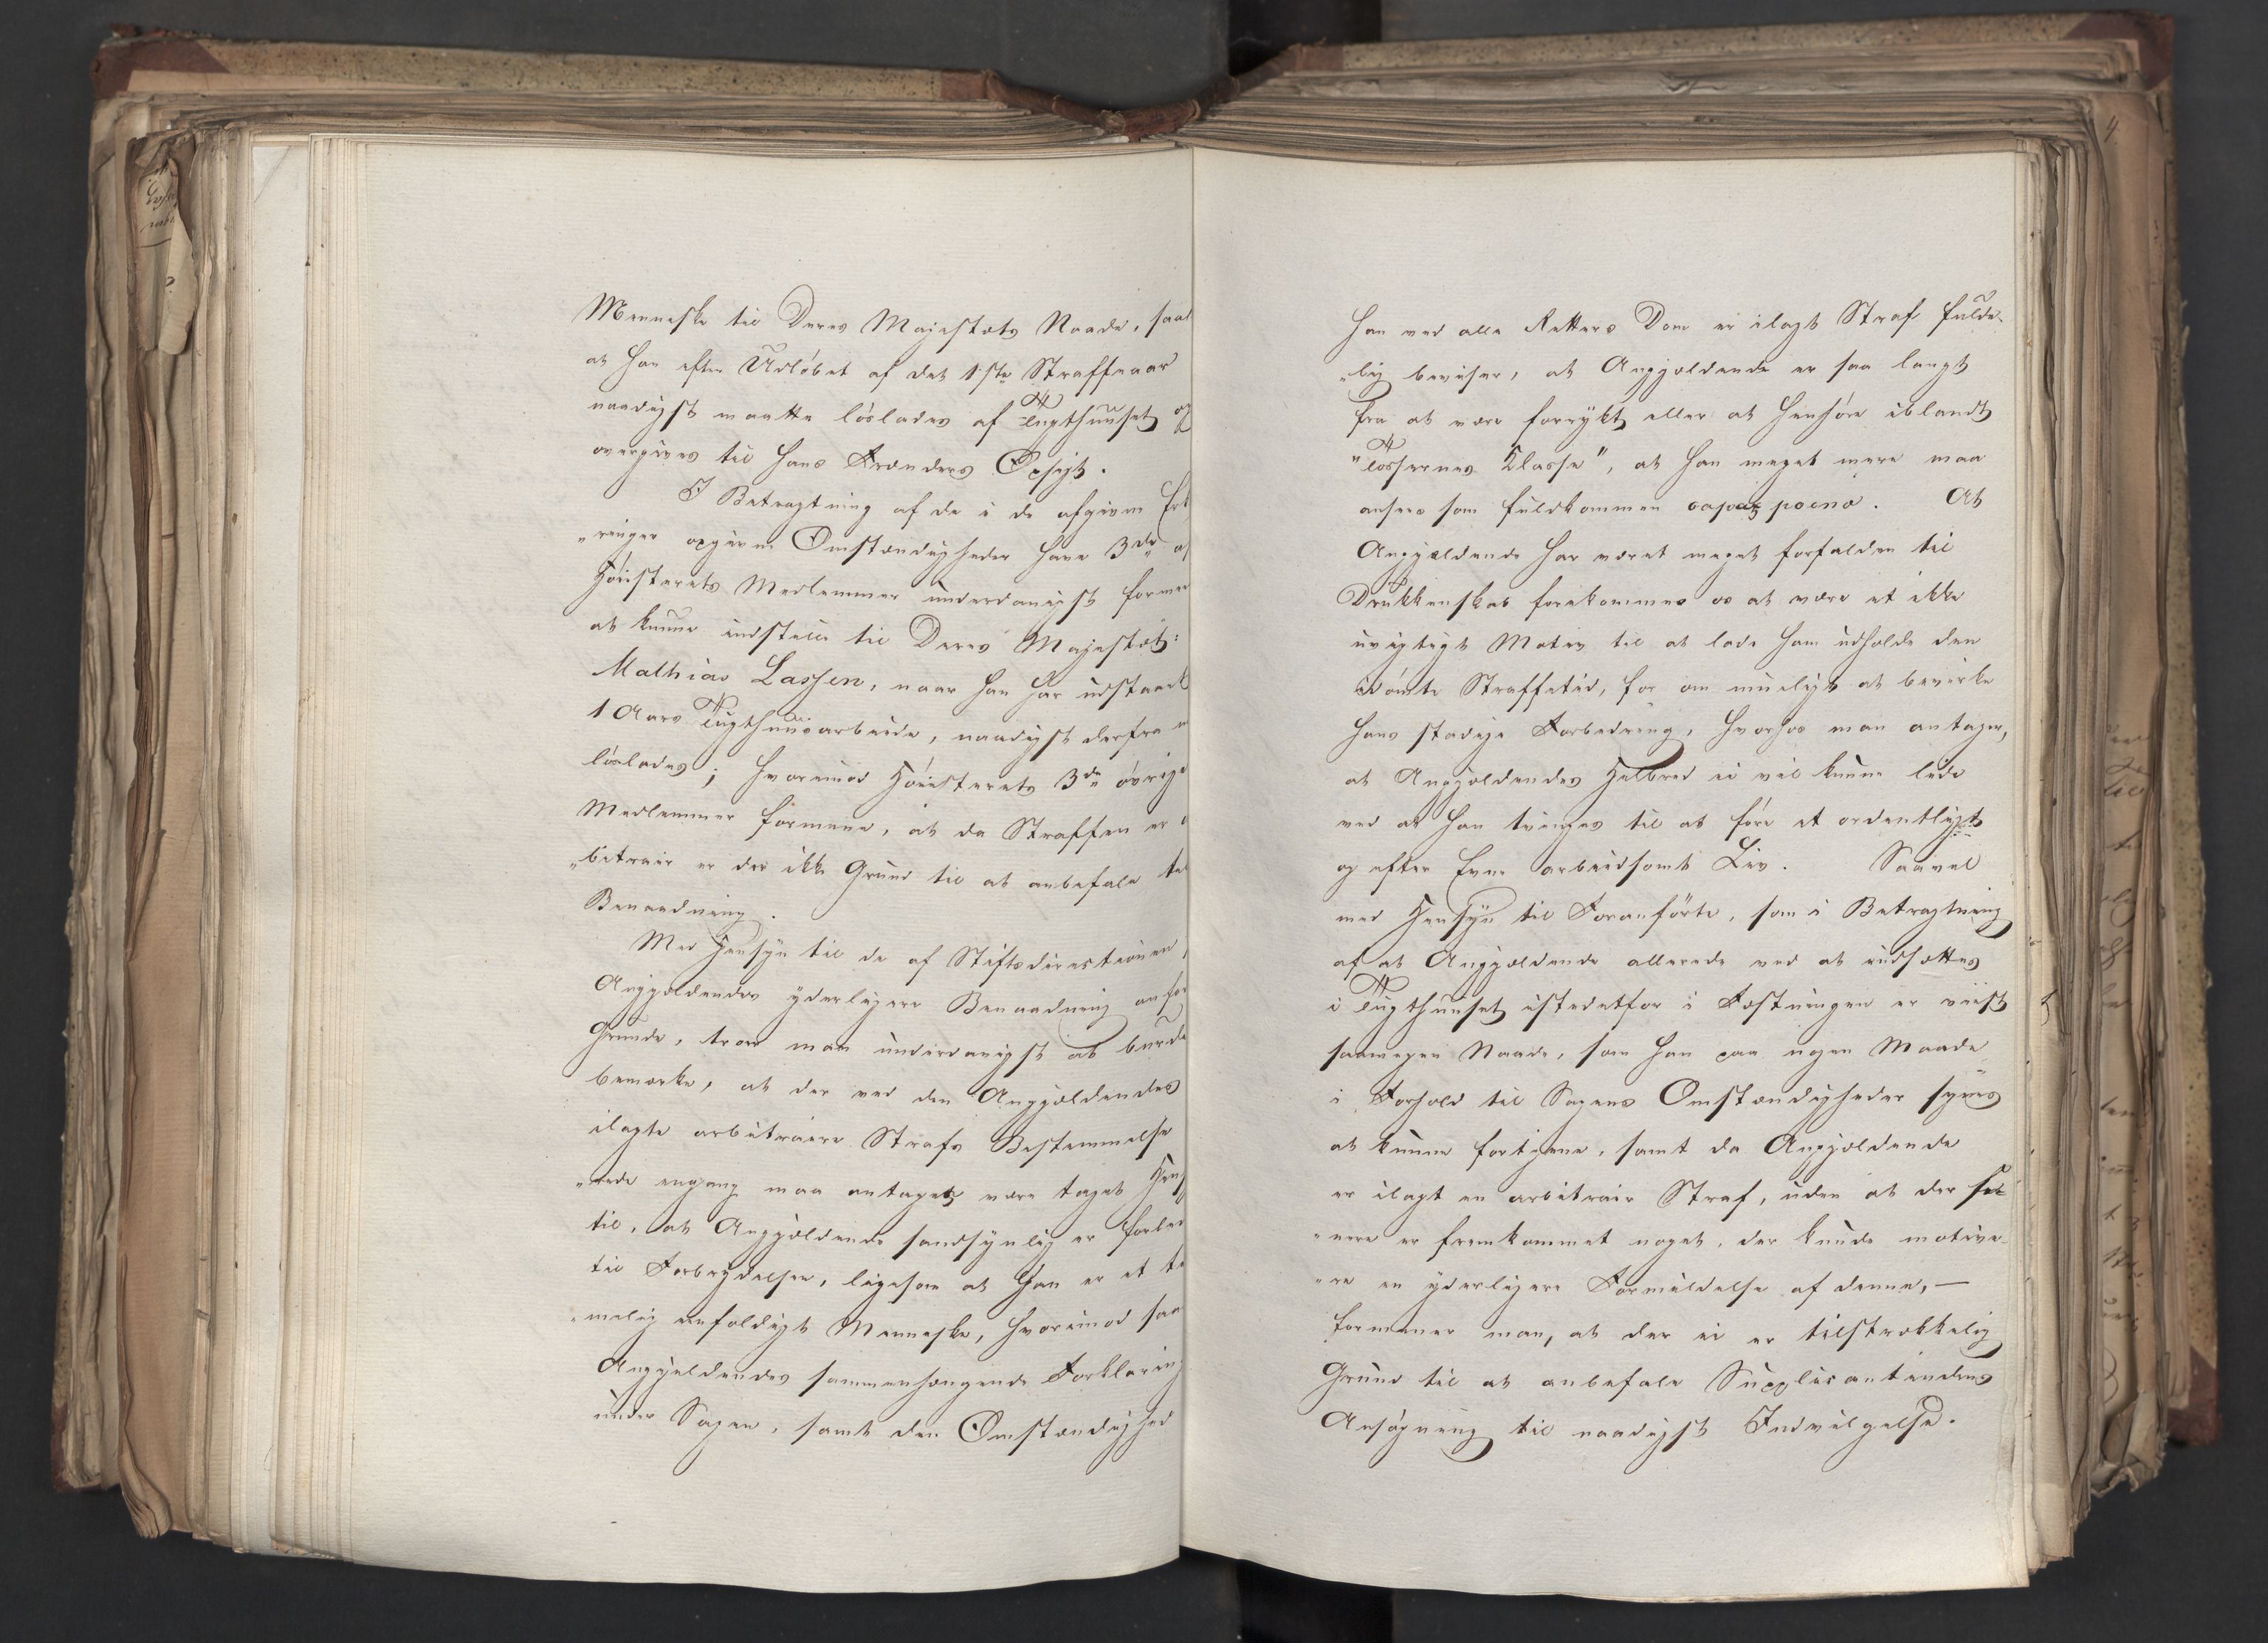 Menneske til Deres Majestæts Naade, saal
at han efter Udløbet af det 1ste Straffeaar
naadigst maatte løslades af Tugthuuset og
overgives til hans Frænders Opsigt.
I Betragtning af de i de afgivne Erk
„ringer opgivne Omstændigheder have 3de af
Høiesterets Medlemmer underdanigst formee
at kunne indstille til Deres Majestæt:
Mathias Lassen, naar han har udstaaet
1 Aars Tugthuusarbeide, naadigst derfra m
løslades; hvorimod Høiesterets 3de øvrige
Medlemmer formene, at da Straffen er
„bitrair er der ikke Grund til at anbefale
Benaadning.
Med Hensyn til de af Stiftsdirectionen,
Angjældendes yderligere Benaadning anfør
Grunde, troer man underdanigst at burde
bemærke, at der ved den Angjældendes
ilagte arbitraire Strafs Bestemmelse
„rede engang maa antages være taget Hens
til, at Angjældende sandsynlig er forled
til Forbrydelsen, ligesom at han er et te
„melig eenfoldigt Menneske, hvorimod saa
Angjældendes sammenhængende Forklaring
under Sagen, samt den Omstændighed
han ved alle Retters Dom er ilagt Straf fulde-
„lig beviser, at Angjældende er saa langt
fra at være forrykt eller at henhøre iblandt
"Tossernes Klasse", at han meget mere maa
ansees som fuldkommen capax poenæ. At
Angjældende har været meget forfalden til
Drukkenskab forekommer os at være et ikke
uvigtigt Motiv til at lade ham udholde den
idømte Straffetid, for om mueligt at bevirke
hans stadige Forbedring, hvorhos man antager,
at Angjældendes Helbred ei vil kunne lide
ved at han tvinges til at føre et ordentligt
og efter Evne arbeidsomt Liv. Saavel
med Hensyn til Foranførte, som i Betragtning
af at Angjældende allerede ved at indsættes
i Tugthuuset istedetfor i Fæstningen er viist
saamegen Naade, som han paa nogen Maade
i Forhold til Sagens Omstændigheder synes
at kunne fortjene, samt da Angjældende
er ilagt en arbitrair Straf, uden at der se-
„nere er fremkommet noget, der kunde motive-
„re en yderligere Formildelse af denne, —
formener man, at der ei er tilstrækkelig
Grund til at anbefale Supplicantindens
Ansøgning til naadigst Indvilgelse.